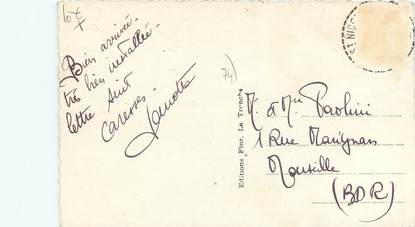 Bien arrivée
très bien installée.
lettre suit
Caresses.
74)
Editions Fine, La Tronche
M. et Mme Paolini
1 Rue Marignan
Marseille
(BDR)